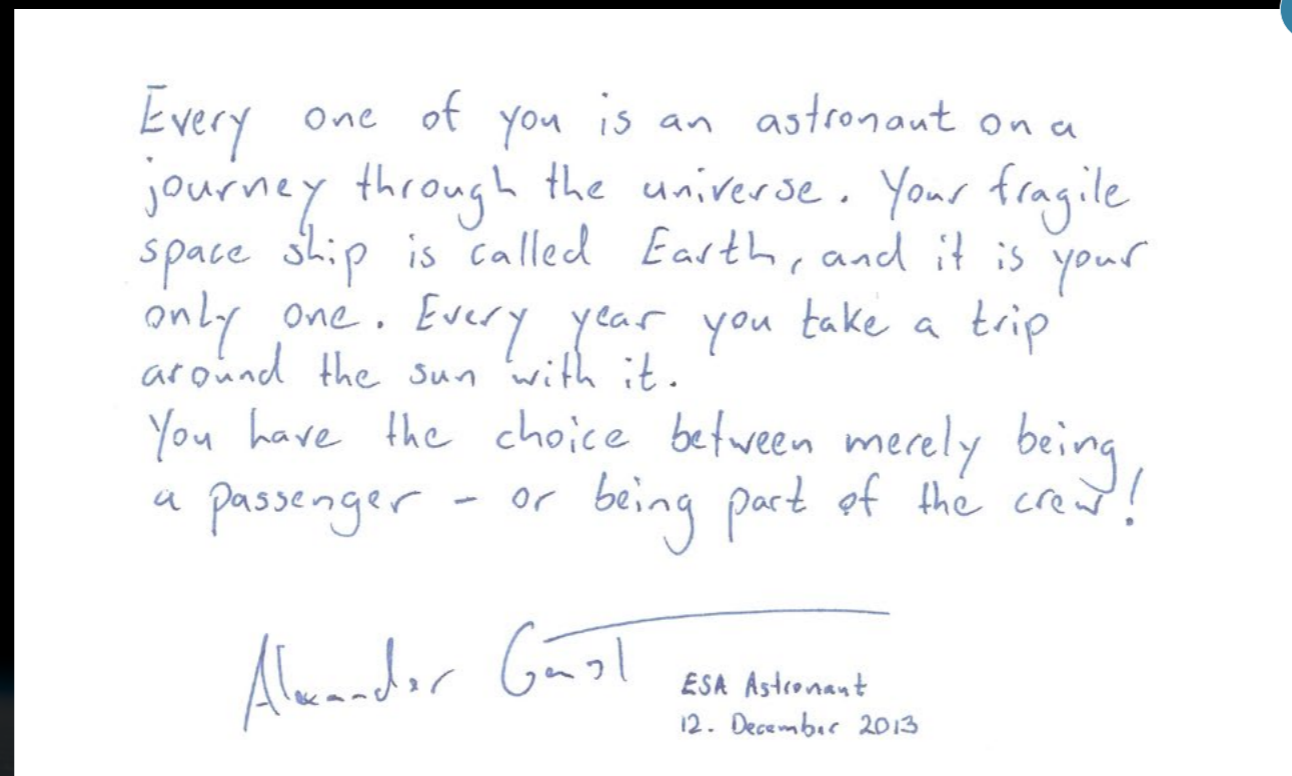 Every one of you is an astronaut on a
journey through the universe. Your fragile
space ship is called Earth, and it is your
only one. Every year you take a trip
around the sun with it.
You have the choice between merely being
a passenger - or being part of the crew!
Alexander Gerst
ESA Astronaut
12. December 2013